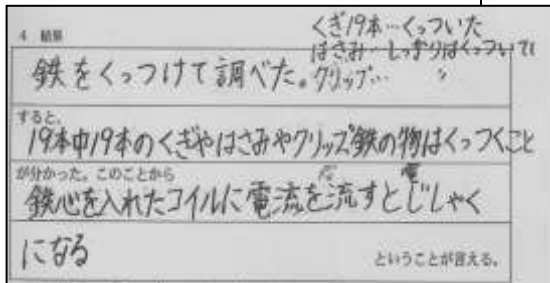 4 結果
くぎ19本…くっついた
はさみ…しっかりはくっついてた
クリップ… 〃
鉄をくっつけて調べた。
すると、
19本中19本のくぎやはさみやクリップ鉄の物はくっつくこと
が分かった。このことから
鉄心を入れたコイルに電流を流すとじしゃく
になる
ということが言える。